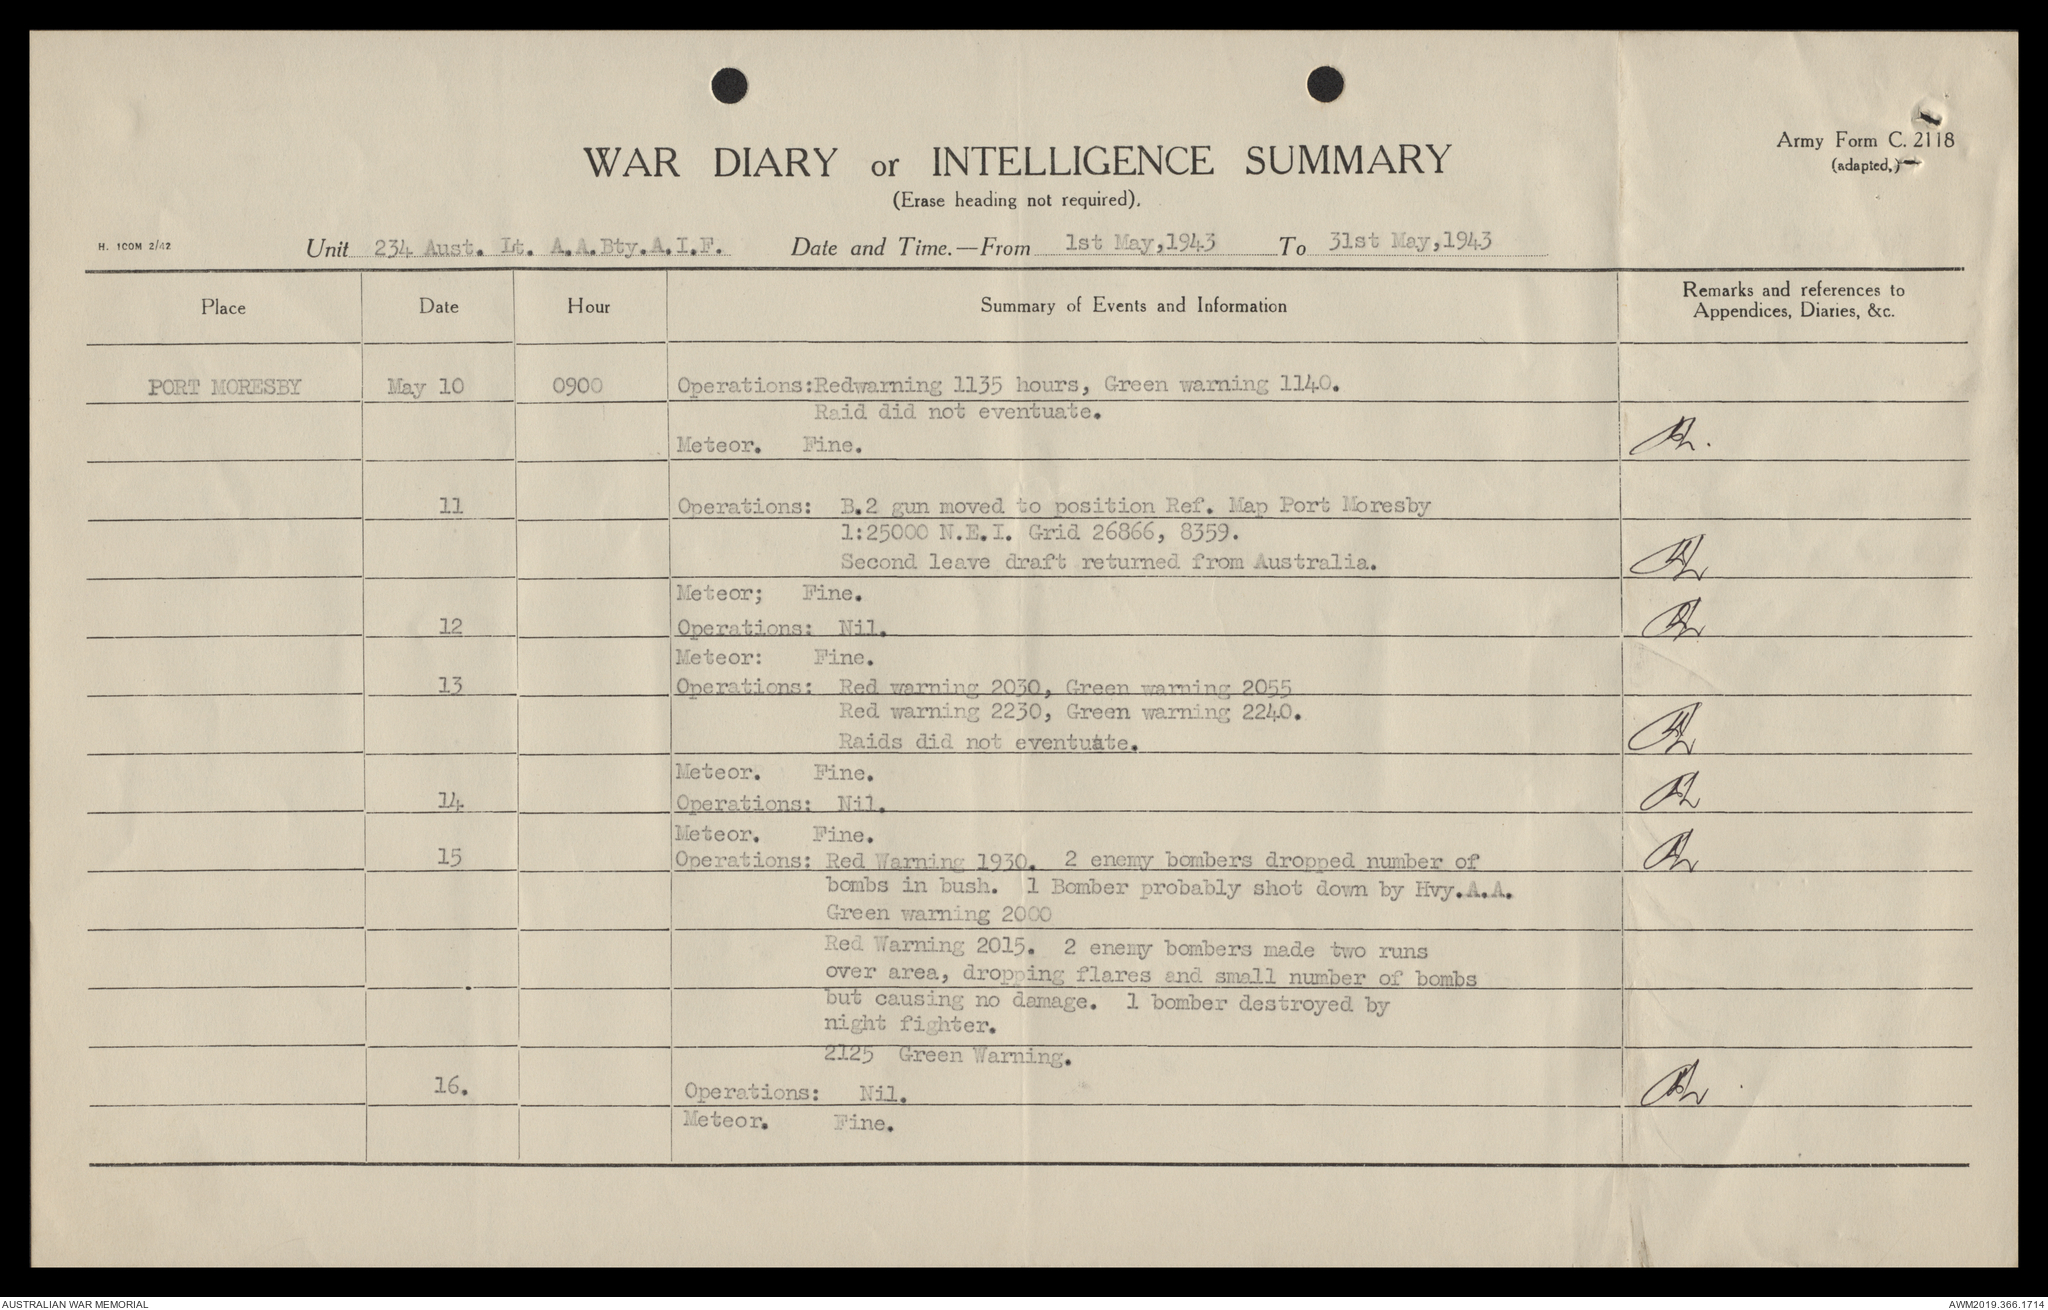 WAR DIARY or INTELLIGENCE SUMMARY
Army Form C. 2118
(adapted,)
(Erase heading not required).
H. 100M 2/42
Unit 234 Aust. Lt. A.A.Bty.A.I.F. Date and Time.—From 1st May,1943 To 31st May,1943
Place Date Hour Summary of Events and Information Remarks and references to
Appendices, Diaries, &c.
PORT MORESBY May 10 0900 Operations:Redwarning 1135 hours, Green warning 1140.
Raid did not eventuate.
Meteor. Fine.
11 Operations: B.2 gun moved to position Ref. Map Port Moresby
1:25000 N.E.I. Grid 26866, 8359.
Second leave draft returned from Australia.
Meteor; Fine.
12 Operations: Nil.
Meteor: Fine.
13 Operations: Red warning 2030, Green warning 2055
Red warning 2230, Green warning 2240.
Raids did not eventuate.
Meteor. Fine.
14 Operations: Nil.
Meteor. Fine.
15 Operations: Red Warning 1930. 2 enemy bombers dropped number of
bombs in bush. 1 Bomber probably shot down by Hvy.A.A.
Green warning 2000
Red Warning 2015. 2 enemy bombers made two runs
over area, dropping flares and small number of bombs
but causing no damage. 1 bomber destroyed by
night fighter.
2125 Green Warning.
16. Operations: Nil.
Meteor. Fine.
AUSTRALIAN WAR MEMORIAL AWM2019.366.1714